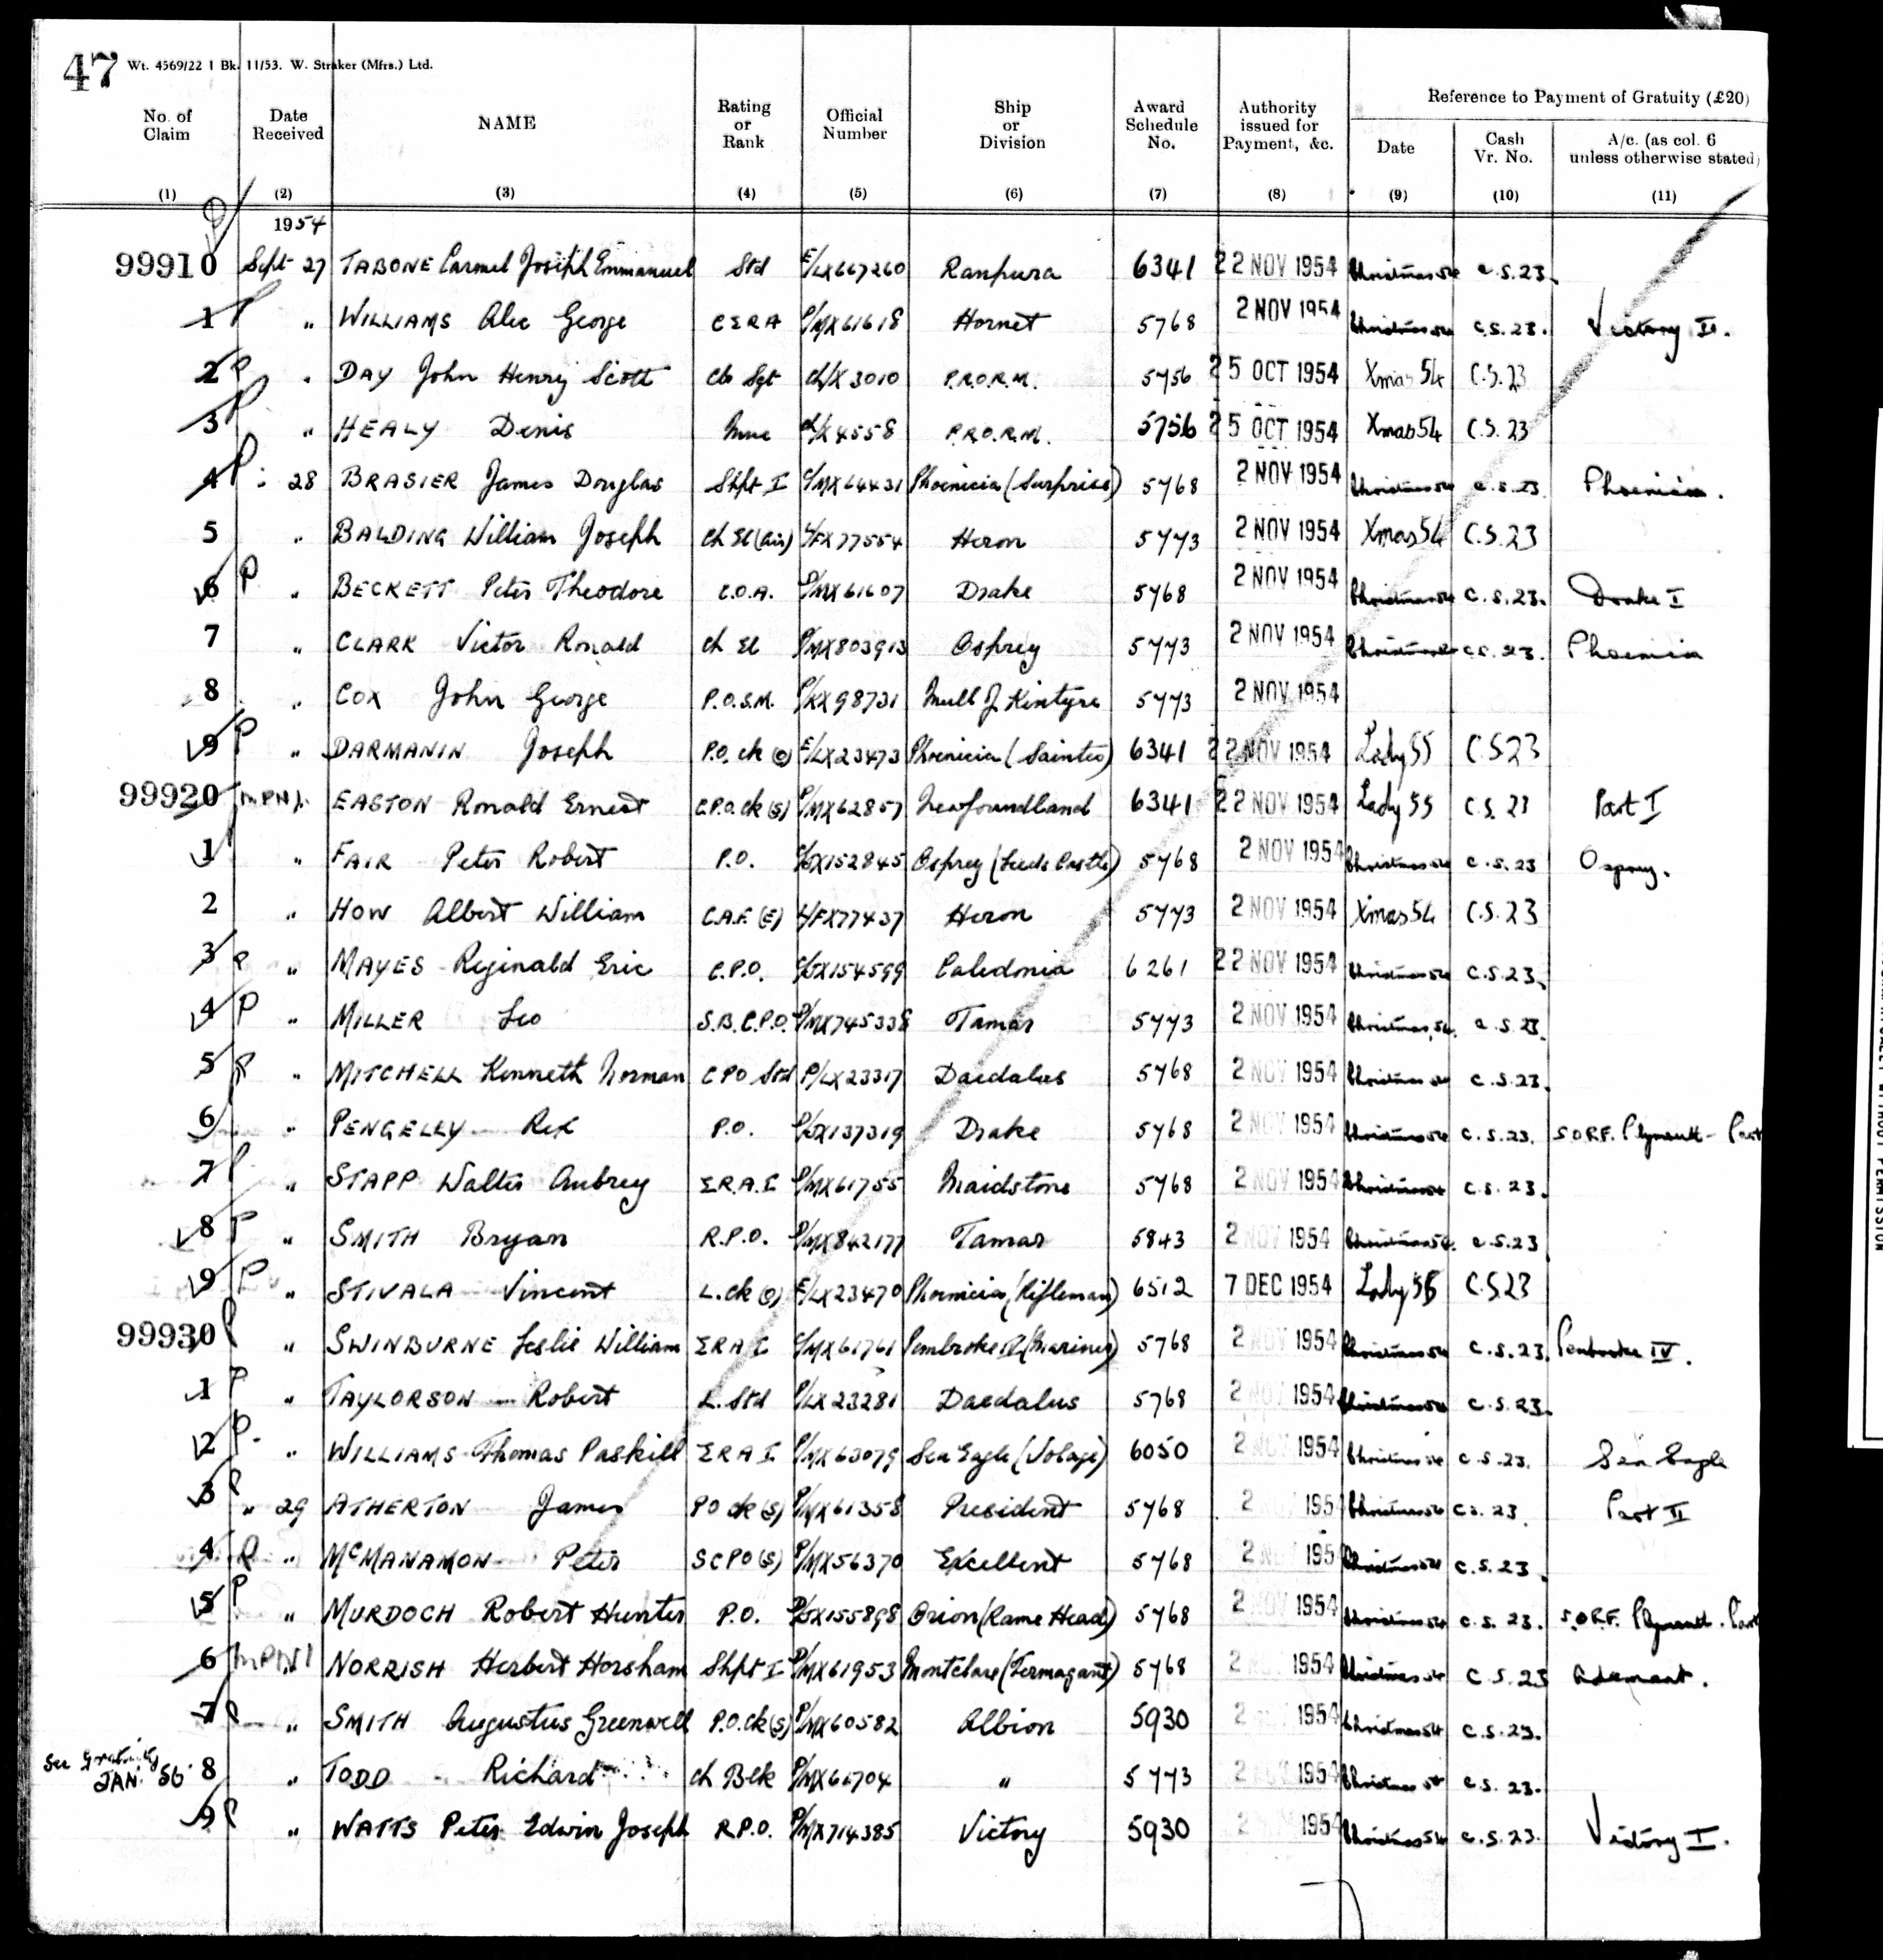 47 Wt. 4569/22 1 Bk. 11/53. W. Straker (Mfrs.) Ltd.
Reference to Payment of Gratuity (£20)
No. of Claim Date Received NAME Rating or Rank Official Number Ship or Division Award Schedule No. Authority issued for Payment, &c. Date Cash Vr. No. A/c. (as col. 6 unless otherwise stated)
(1) (2) (3) (4) (5) (6) (7) (8) (9) (10) (11)
1954
99910 Sept 27 TABONE Carmel Joseph Emmanuel Std E/LX667260 Ranpura 6341 22 NOV 1954 Christmas 54 C.S.23.
1 P " WILLIAMS Alec George CERA P/MX61618 Hornet 5768 2 NOV 1954 Christmas 54 C.S.23. Victory II.
2 P " DAY John Henry Scott Clr Sgt Ch/X 3010 P.R.O.R.M. 5756 25 OCT 1954 Xmas 54 C.S.23
3 P " HEALY Denis Mne Ch/X 4558 P.R.O.R.M. 5756 25 OCT 1954 Xmas 54 C.S.23
4 P " 28 BRASIER James Douglas Shpt I C/MX64431 Phoenicia (Surprise) 5768 2 NOV 1954 Christmas 54 C.S.23 Phoenicia.
5 " BALDING William Joseph Ch El (Air) L/FX77554 Heron 5773 2 NOV 1954 Xmas 54 C.S.23
6 P " BECKETT Peter Theodore C.O.A. P/MX61607 Drake 5768 2 NOV 1954 Christmas 54 C.S.23. Drake I
7 " CLARK Victor Ronald Ch El P/MX803913 Osprey 5773 2 NOV 1954 Christmas 54 C.S.23. Phoenicia
8 " COX John George P.O.S.M. P/KX98731 Mull of Kintyre 5773 2 NOV 1954
9 P " DARMANIN Joseph P.O. Ck (O) E/LX23473 Phoenicia (Saintes) 6341 22 NOV 1954 Lady 55 C.S23
99920 MPN1 EASTON Ronald Ernest C.P.O. Ck (S) P/MX62857 Newfoundland 6341 22 NOV 1954 Lady 55 C.S.23 Part I
1 " FAIR Peter Robert P.O. C/JX152845 Osprey (Leeds Castle) 5768 2 NOV 1954 Christmas 54 C.S.23 Osprey.
2 " HOW Albert William C.A.F. (E) L/FX77437 Heron 5773 2 NOV 1954 Xmas 54 C.S.23
3 P " MAYES Reginald Eric C.P.O. C/JX154599 Caledonia 6261 22 NOV 1954 Christmas 54 C.S.23.
4 P " MILLER Leo S.B.C.P.O. P/MX745338 Tamar 5773 2 NOV 1954 Christmas 54. C.S.23.
5 P " MITCHELL Kenneth Norman CPO Std P/LX23317 Daedalus 5768 2 NOV 1954 Christmas 54 C.S.23.
6 " PENGELLY Rex P.O. P/JX137319 Drake 5768 2 NOV 1954 Christmas 54 C.S.23. S.O.R.F. Plymouth - Part
7 P " STAPP Walter Aubrey E.R.A. I P/MX61755 Maidstone 5768 2 NOV 1954 Christmas 54 C.S.23.
8 P " SMITH Bryan R.P.O. P/MX842177 Tamar 5843 2 NOV 1954 Christmas 54. C.S.23
9 P " STIVALA Vincent L. Ck (O) E/LX23470 Phoenicia (Rifleman) 6512 7 DEC 1954 Lady 55 C.S23
99930 P " SWINBURNE Leslie William ERA I C/MX61761 Pembroke IV (Mariner) 5768 2 NOV 1954 Christmas 54 C.S.23. Pembroke IV.
1 P " TAYLORSON Robert L. Std P/LX23281 Daedalus 5768 2 NOV 1954 Christmas 54 C.S.23.
2 P. " WILLIAMS Thomas Paskill ERA I P/MX63079 Sea Eagle (Volage) 6050 2 NOV 1954 Christmas 54 C.S.23. Sea Eagle
3 P " 29 ATHERTON James PO Ck (S) P/MX61358 President 5768 2 NOV 1954 Christmas 54 C.S.23. Part II
4 P " McMANAMON Peter SCPO (S) P/MX56370 Excellent 5768 2 NOV 1954 Christmas 54 C.S.23.
5 P " MURDOCH Robert Hunter P.O. P/JX155898 Orion (Rame Head) 5768 2 NOV 1954 Christmas 54 C.S.23. S.O.R.F. Plymouth. Part
6 MPN1 NORRISH Herbert Horsham Shpt I P/MX61953 Montclare (Termagant) 5768 2 NOV 1954 Christmas 54 C.S.23 Adamant.
7 P " SMITH Augustus Greenwell P.O.Ck (S) P/MX60582 Albion 5930 2 NOV 1954 Christmas 54 C.S.23.
See Gratuity JAN. 56. 8 " TODD Richard Ch Blk P/MX61704 " 5773 2 NOV 1954 Christmas 54 C.S.23.
9 P " WATTS Peter Edwin Joseph R.P.O. P/MX714385 Victory 5930 2 NOV 1954 Christmas 54 C.S.23. Victory I.